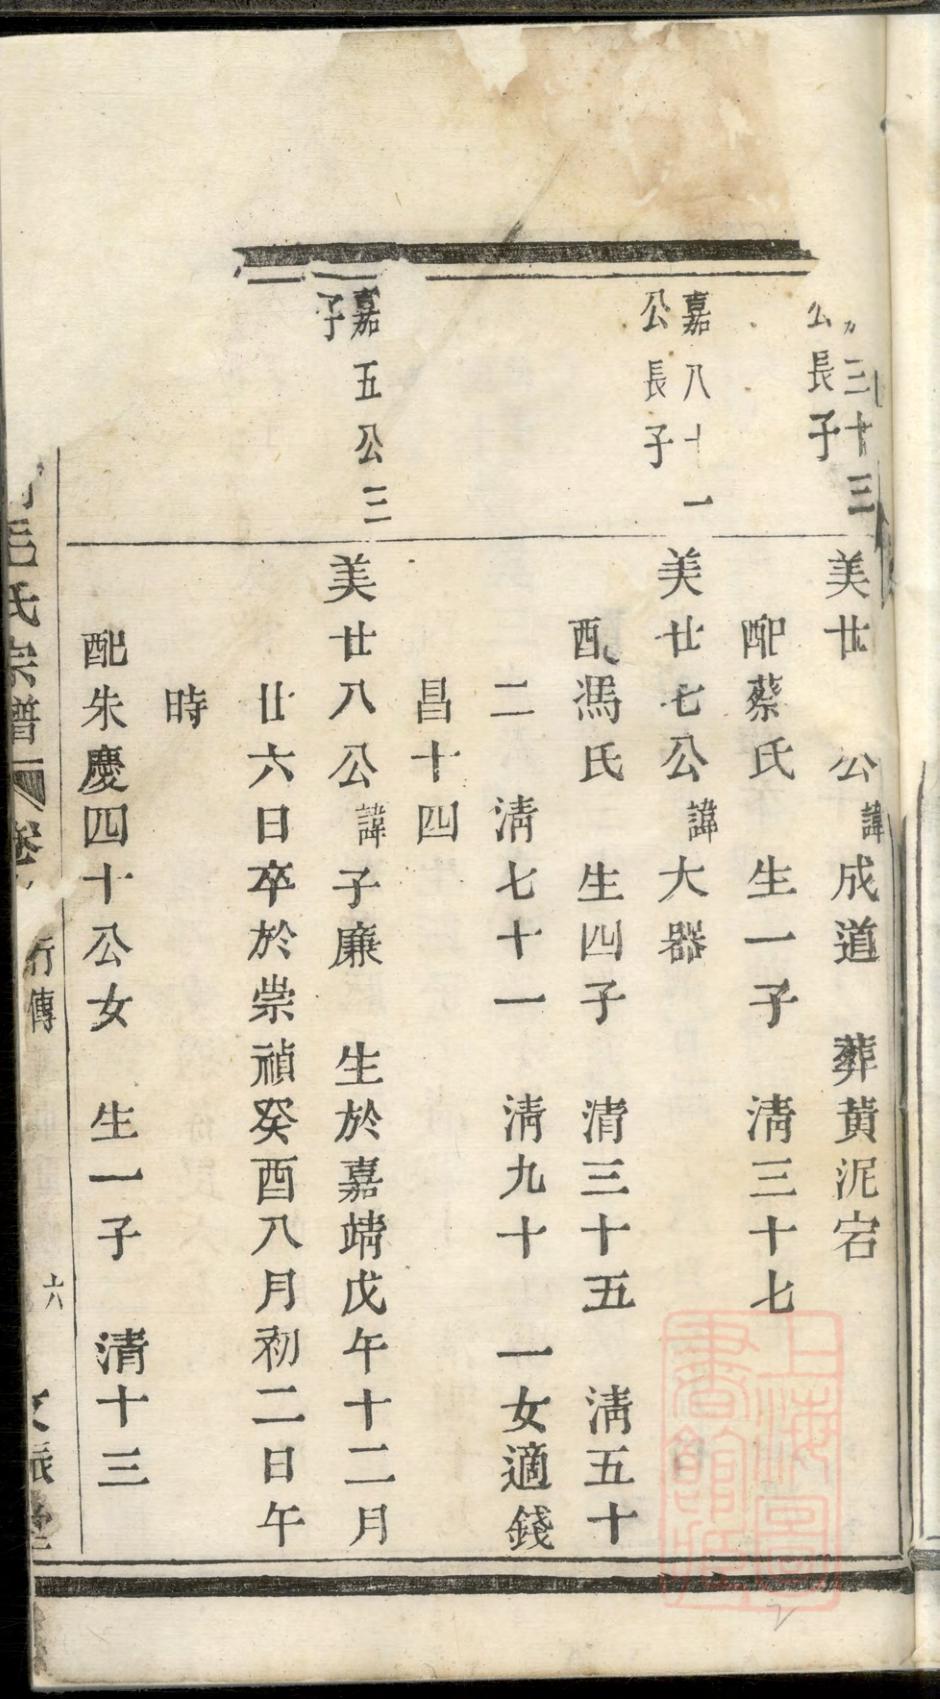 三十三
公長子
美廿 公諱成道 葬黃泥宕
配蔡氏 生一子 淸三十七
嘉八十一
公長子
美廿七公諱大器
配馮氏 生四子 淸三十五 淸五十
二 淸七十一 淸九十 一女適錢
昌十四
嘉五公三
子
美廿八公諱子廉 生於嘉靖戊午十二月
廿六日卒於崇禎癸酉八月初二日午
時
配朱慶四十公女 生一子 淸十三
毛氏宗譜 卷 行傳 六
上海圖書館藏